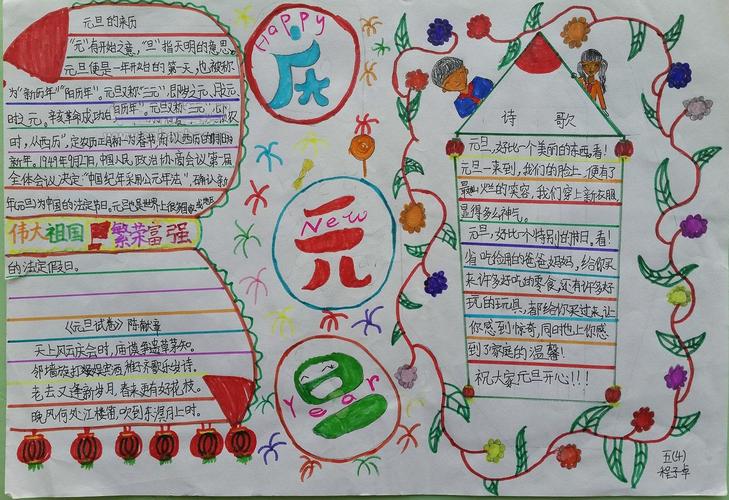 元旦的来历
"元"有开始之意,"旦"指天明的意思。
元旦便是一年开始的第一天,也被称
为"新历年""阳历年"。元旦又称"三元",即岁之元、月之元
时之元。辛亥革命成功
时,从西历",定农历正月初一为春节
新年。1949年9月27日,中国人民政治协商会议第一届
全体会议决定"中国纪年采用公元年法",确认新
年元旦为中国的法定节日。
伟大祖国 繁荣富强
的法定假日。
《元旦试卷》 陈献章
天上风云庆会时,庙谟争遗草茅知。
邻墙旋打娱宾酒,稚子齐歌乐岁诗。
老去又逢新岁月,春来更有好花枝。
晚风何处江楼笛,吹到东溟月上时。
Happy
庆
New
元
Year
旦
诗 歌
元旦,好比一个美丽的东西,看!
元旦一来到,我们的脸上,便有了
最灿烂的笑容,我们穿上新衣服,
显得多么神气。
元旦,好比个特别的节日,看!
省吃俭用的爸爸妈妈,给你买
来许多好吃的零食,还有许多好
玩的玩具,都给你买过来,让
你感到惊奇,同时也让你感
到了家庭的温馨!
祝大家元旦开心!!!
五(4)
程子卓